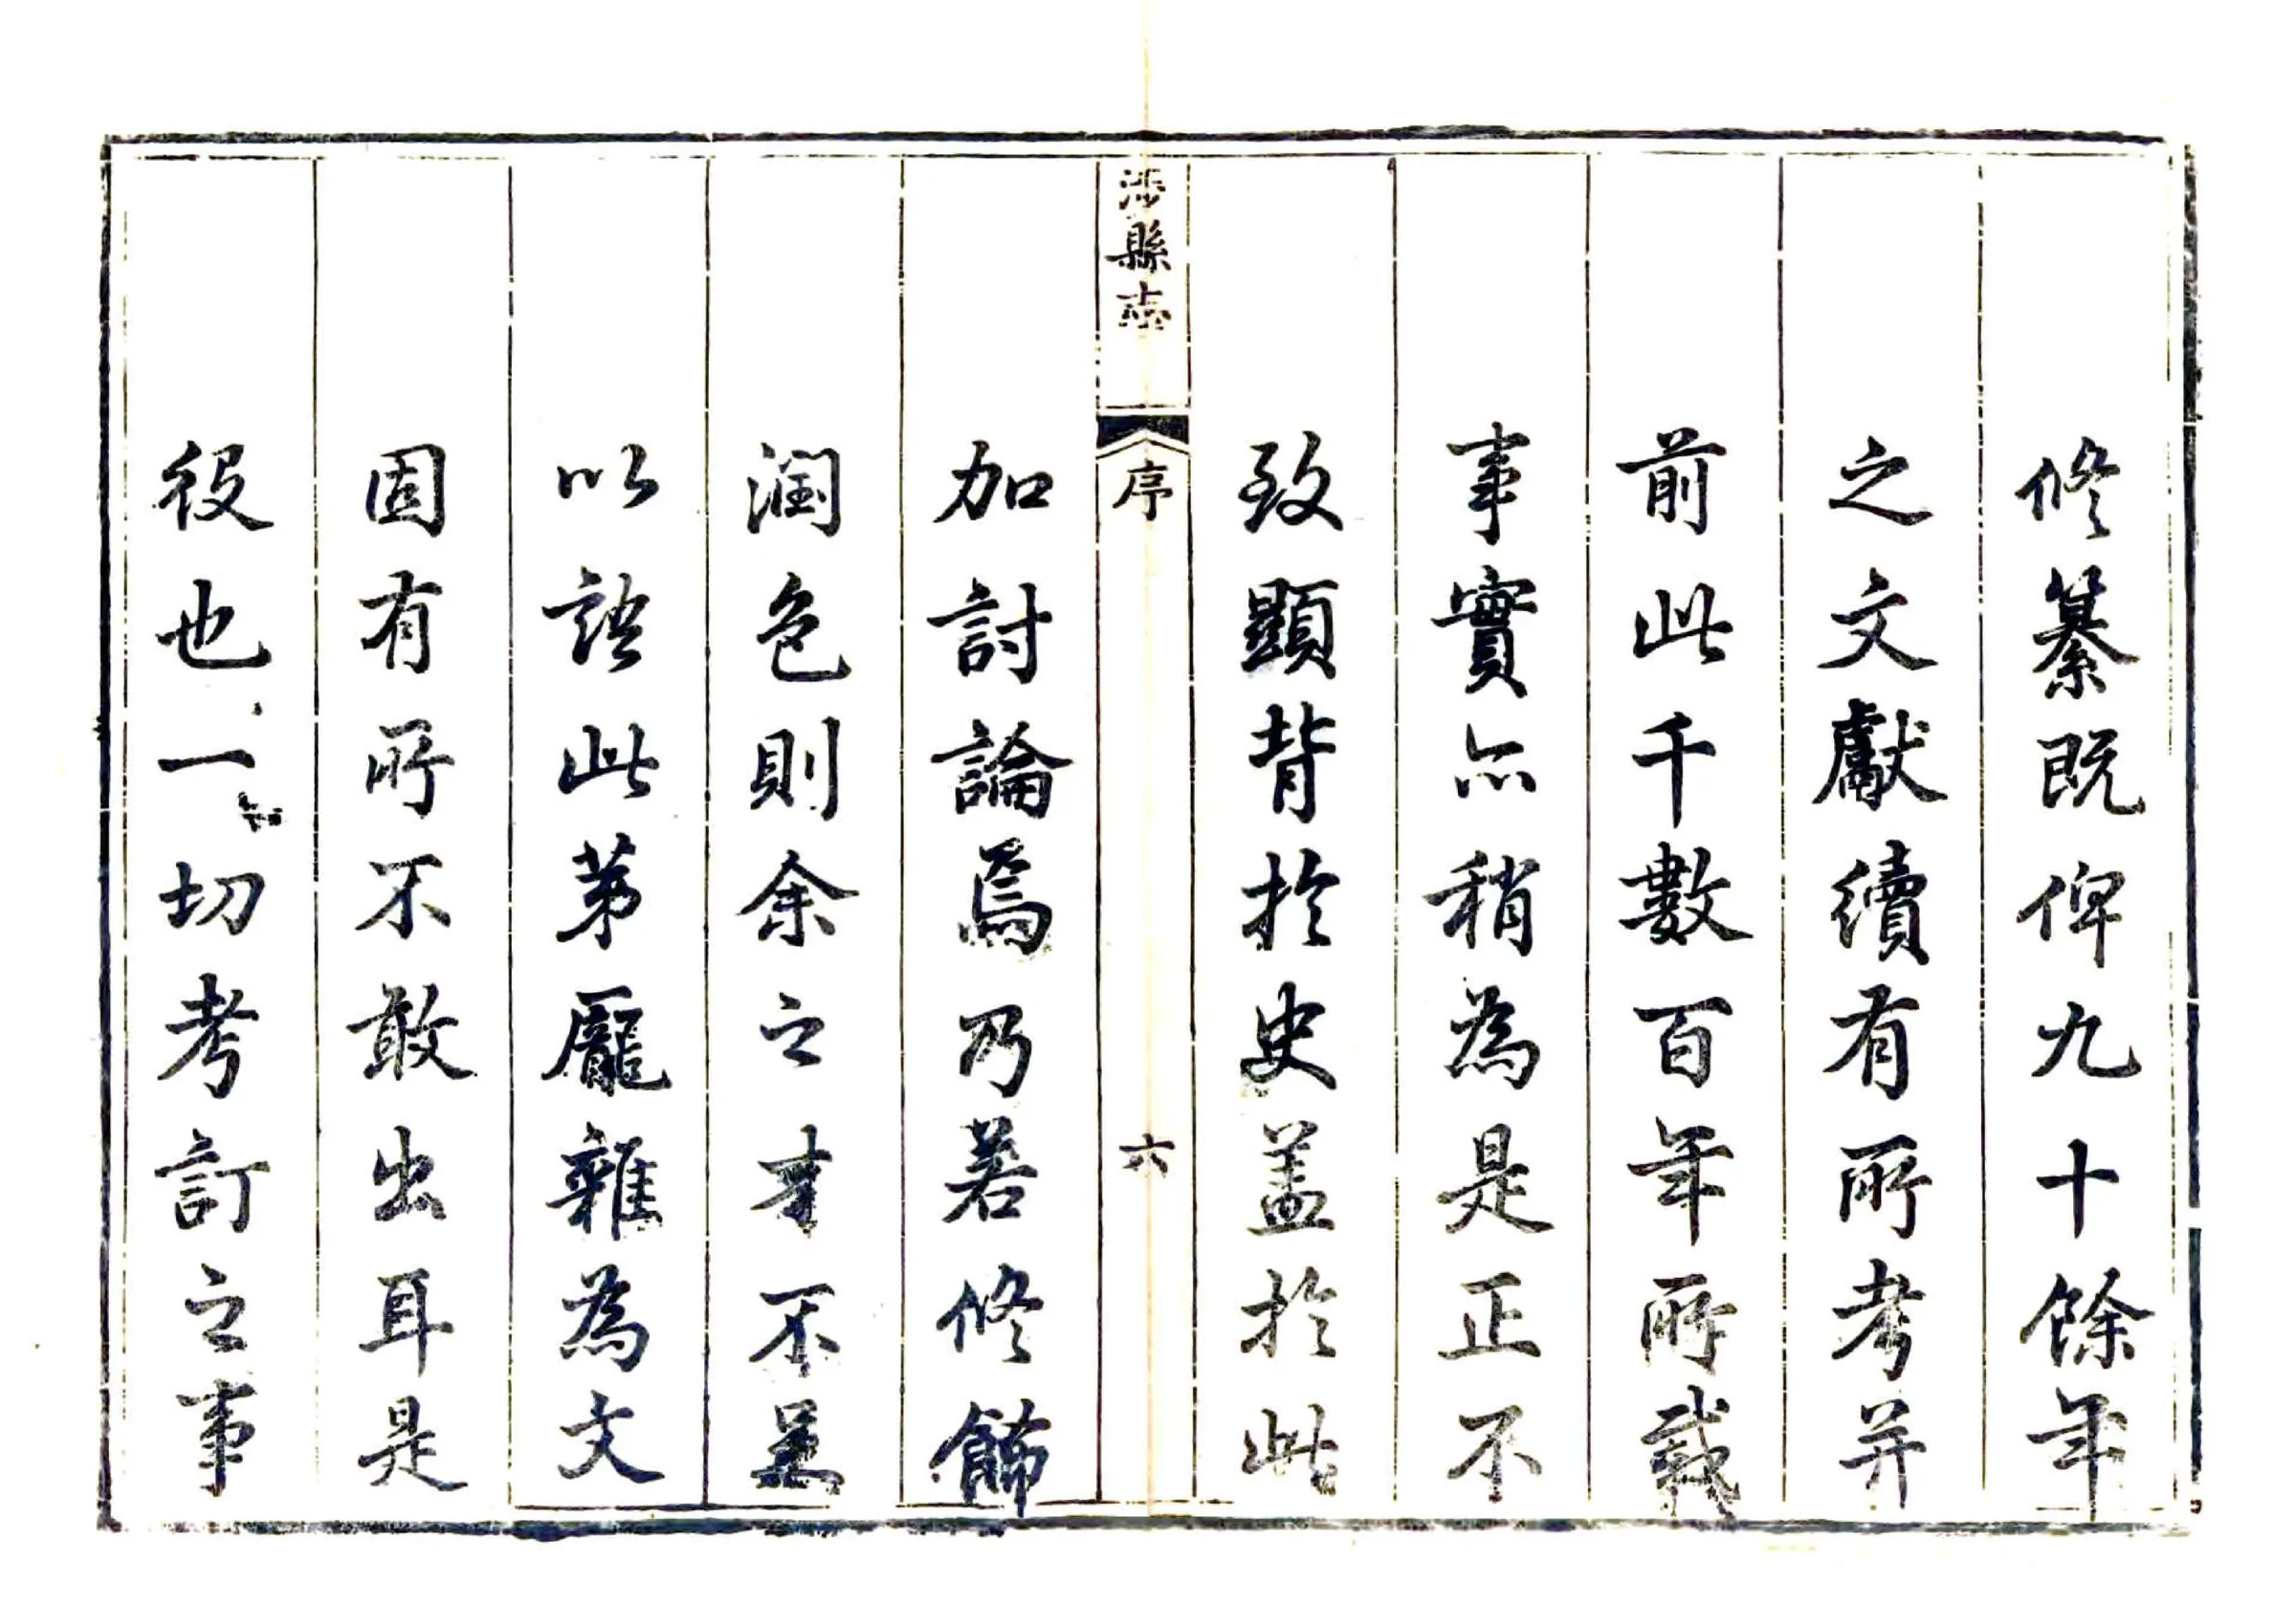 修纂既俾九十餘年
之文獻續有所考并
前此千數百年所載
事實亦稍為是正不
致顯背於史盖於此
涉縣志
序
六
加討論焉乃若修飾
潤色則余之才不足
以語此苐龎雜為文
固有所不敢出耳是
役也一切考訂之事